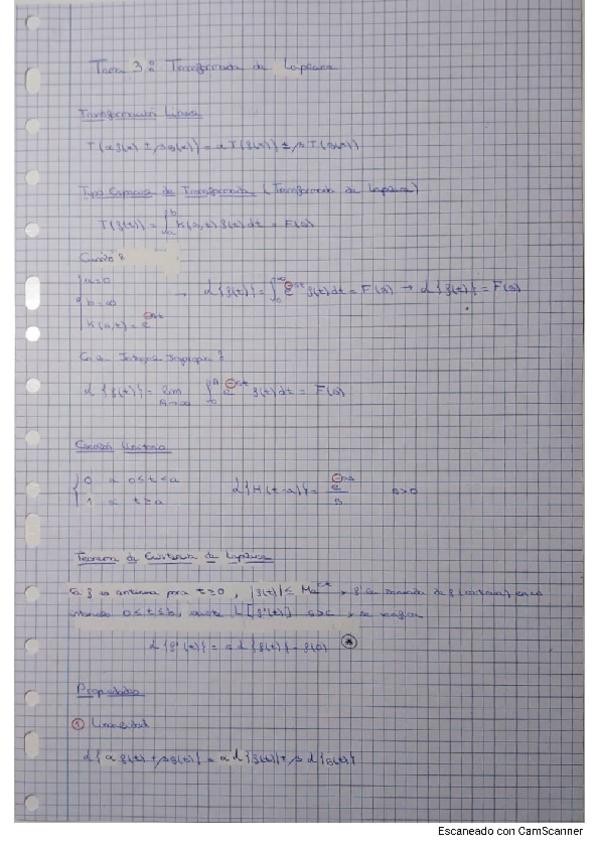 Tema 3: Transformada de Laplace
Transformación Lineal
T{αf(t) ± βg(t)} = αT{f(t)} ± βT{g(t)}
Tipo Especial de Transformada (Transformada de Laplace)
T{f(t)} = ∫_a^b K(s,t) f(t) dt = F(s)
Cuando:
{ a = 0
b = ∞ → L{f(t)} = ∫_0^∞ e^{-st} f(t) dt = F(s) → L{f(t)} = F(s)
K(s,t) = e^{-st}
Integral Impropia:
L{f(t)} = lim_{A→∞} ∫_0^A e^{-st} f(t) dt = F(s)
Escalón Unitario
{ 0 si 0≤t<a L{H(t-a)} = e^{-sa}/s s>0
1 si t≥a
Teorema de Existencia de Laplace
Si f es continua para t≥0, |f(t)| ≤ Me^{ct}, f' en
intervalo 0≤t≤b, existe L[f'(t)] s>c y se
L{f'(t)} = sL{f(t)} - f(0) (*)
Propiedades
① Linealidad
L{αf(t) + βg(t)} = αL{f(t)} + βL{g(t)}
Escaneado con CamScanner